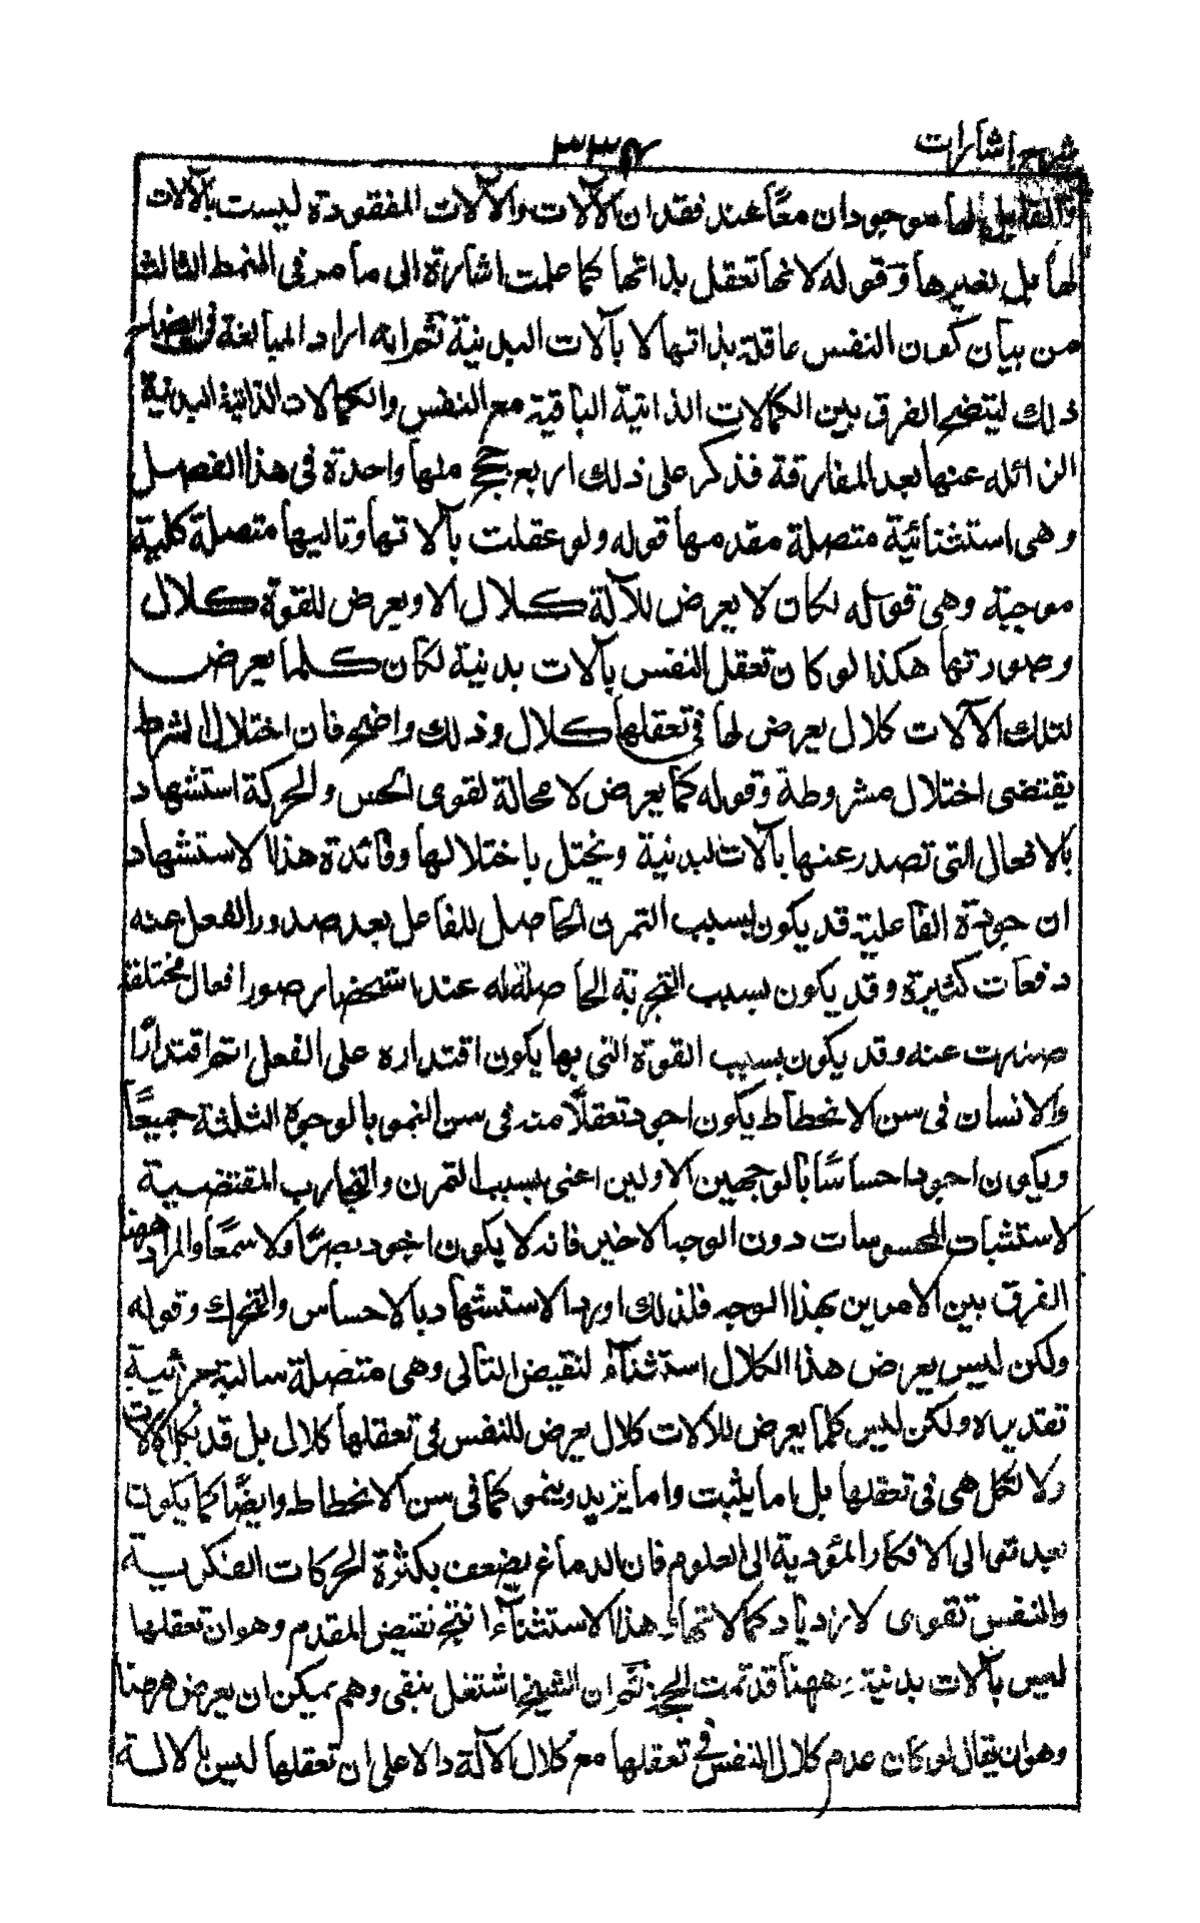 شرح اشارات
۳۳۴
القابل لها موجودان معًا عند فقدان الآلات والآلات المفقودة ليست بآلات
لها بل لغيرها وقوله لانها تعقل بذاتها كما علمت اشارة الى ما مر فى النمط الثالث
من بيان كون النفس عاقلة بذاتها لا بآلات البدنية ثم انه اراد المبالغة فى ايضاح
ذلك ليتضح الفرق بين الكمالات الذاتية الباقية مع النفس والكمالات الذاتية البدنية
الزائله عنها بعد المفارقة فذكر على ذلك اربع حجج منها واحدة فى هذا الفصل
وهى استثنائية متصلة مقدمها قوله ولو عقلت بآلاتها وتاليها متصلة كلية
موجبة وهى قوله لكان لا يعرض للآلة كلال الا ويعرض للقوة كلال
وصورتها هكذا لو كان تعقل النفس بآلات بدنية لكان كلما يعرض
لتلك الآلات كلال يعرض لها فى تعقلها كلال وذلك واضح فان اختلال الشرط
يقتضى اختلال مشروطة وقوله كما يعرض لا محالة لقوى الحس والحركة استشهاد
بالافعال التى تصدر عنها بآلات البدنية ويختل باختلالها وفائدة هذا الاستشهاد
ان جودة الفاعلية قد يكون بسبب التمرن الحاصل للفاعل بعد صدور الفعل عنه
دفعات كثيرة وقد يكون بسبب التجربة الحاصلة له عند استحضار صور افعال مختلفة
صدرت عنه وقد يكون بسبب القوة التى بها يكون اقتداره على الفعل اتم اقتدارًا
والانسان فى سن الانحطاط يكون اجود تعقلًا منه فى سن النمو بالوجوه الثلثة جميعًا
ويكون اجود احساسًا بالوجهين الاولين اعنى بسبب التمرن والتجارب المقتضية
لاستثبات المحسوسات دون الوجه الاخير فانه لا يكون اجود بصرًا ولا سمعًا والمراد ههنا
الفرق بين الامرين بهذا الوجه فلذلك اورد الاستشهاد بالاحساس والتحرك وقوله
ولكن ليس يعرض هذا الكلال استثناء لنقيض التالى وهى متصلة سالبة جزئية
تقديراه ولكن ليس كلما يعرض للآلات كلال يعرض للنفس فى تعقلها كلال بل قد تكل الآلات
ولا تكل هى فى تعقلها بل اما يثبت واما يزيد وينمو كما فى سن الانحطاط وايضًا كما يكون
بعد توالى الافكار المؤدية الى العلوم فان الدماغ يضعف بكثرة الحركات الفكرية
والنفس تقوى لازدياد كمالاتها هذا الاستثناء انتج نقيض المقدم وهو ان تعقلها
ليس بآلات بدنية وههنا قد تمت الحجة ثم ان الشيخ اشتغل بنفى وهم يمكن ان يعرض ههنا
وهو ان يقال لو كان عدم كلال النفس فى تعقلها مع كلال الآلة دالا على ان تعقلها ليس بالالة